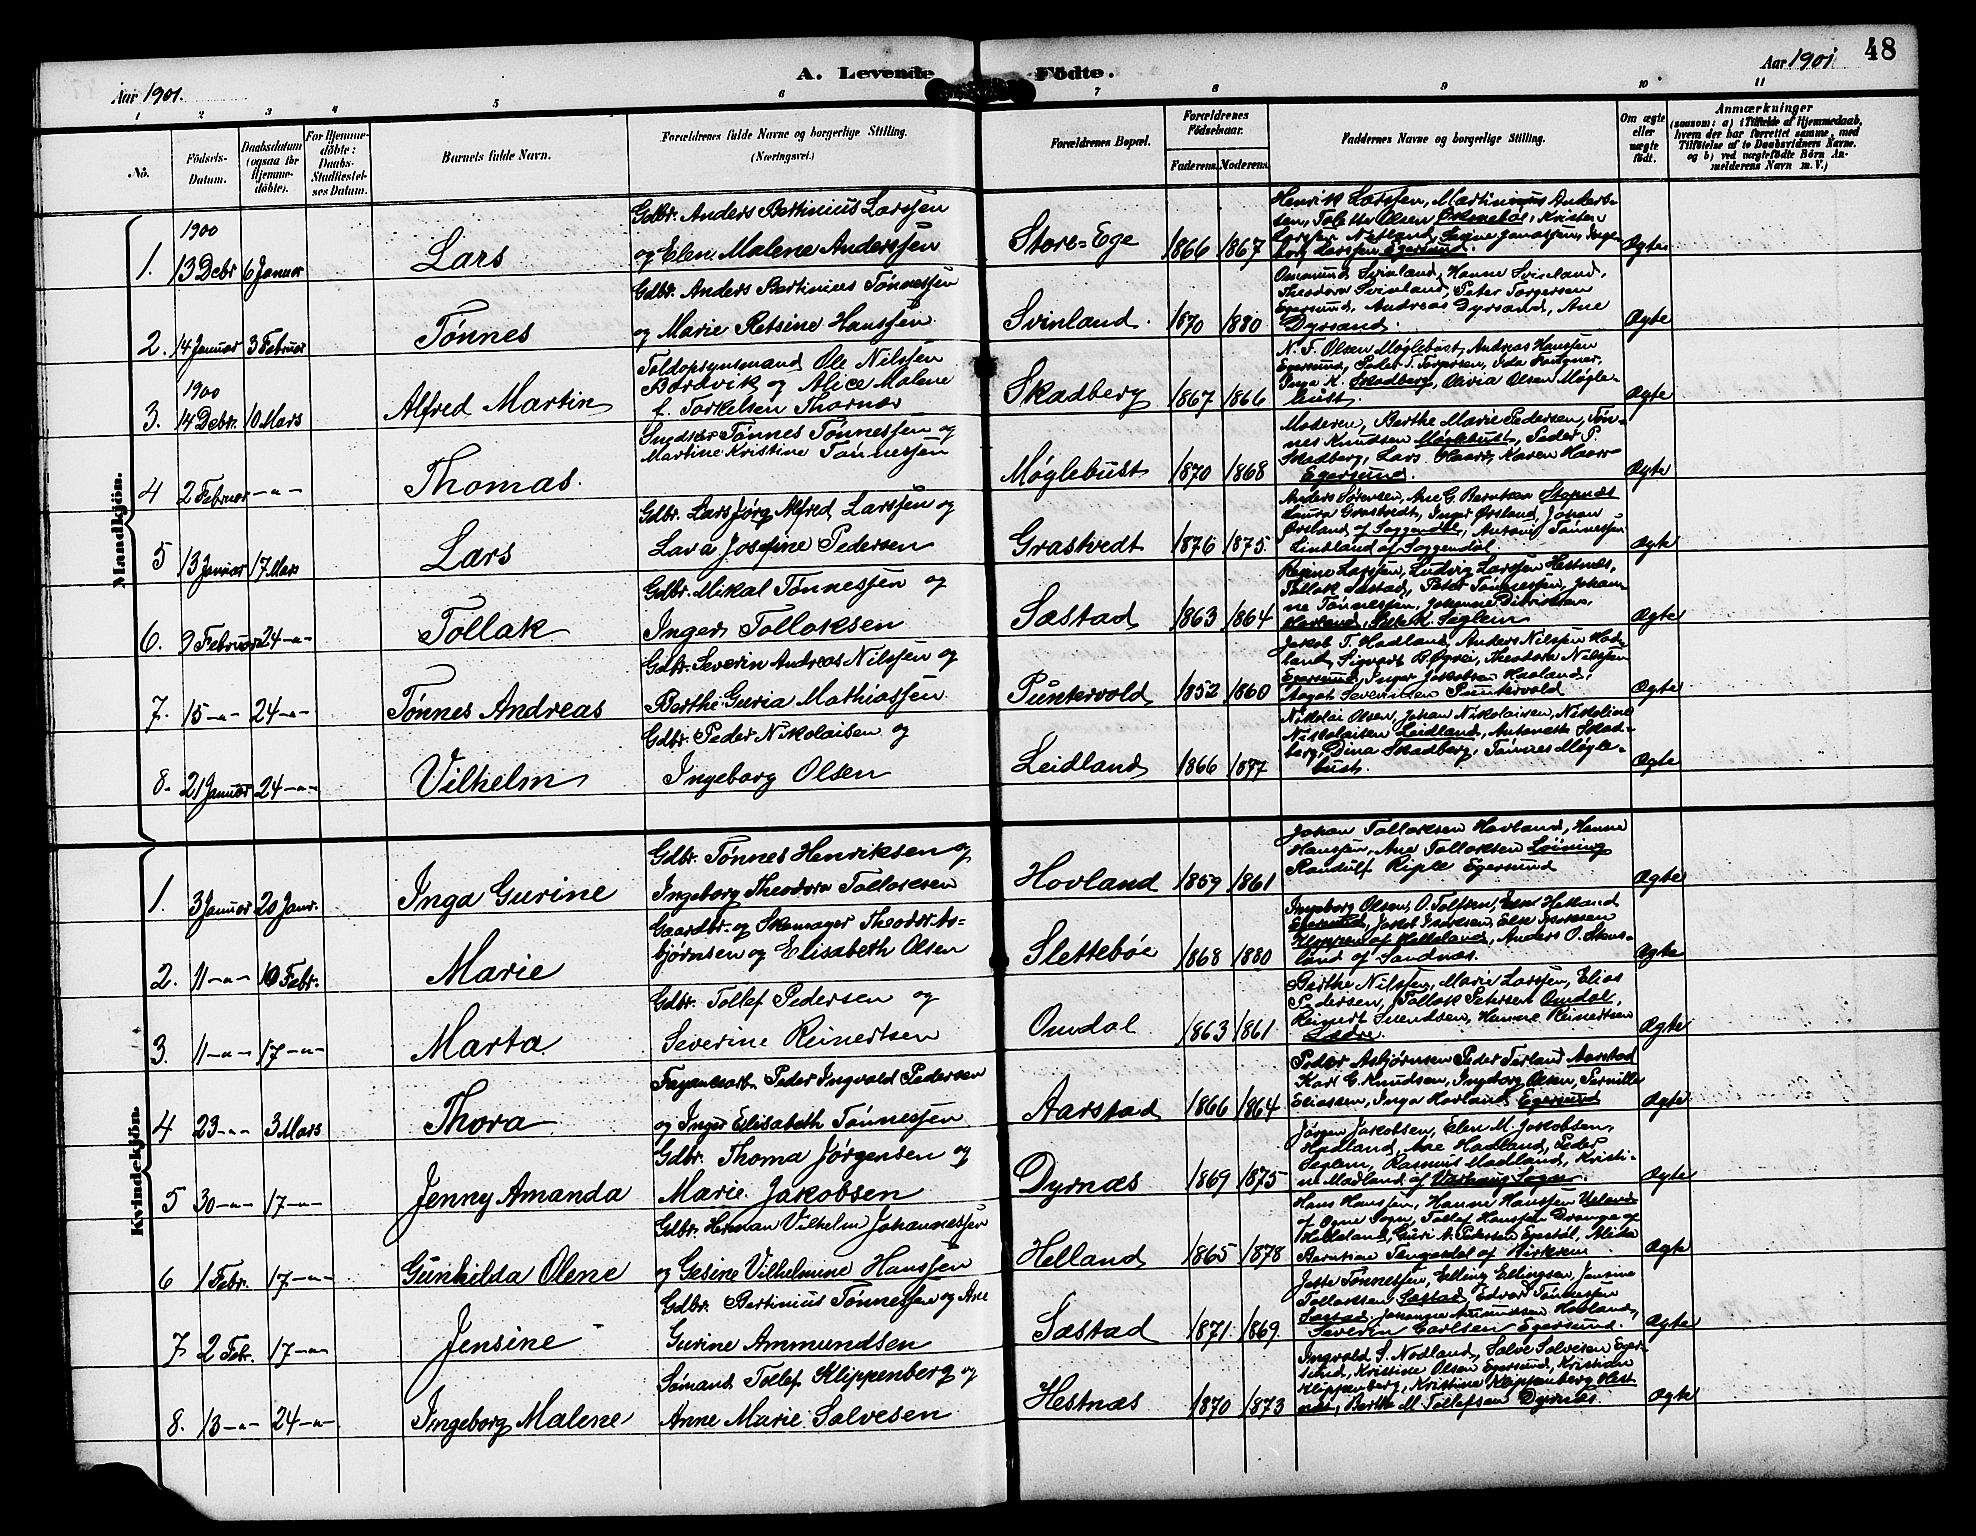 48
Aar 1901.
A. Levende Födte.
Aar 1901
1 2 3 4 5 6 7 8 9 10 11
No.
Födsels-Datum.
Daabsdatum (ogsaa for Hjemme-döbte).
For Hjemme-döbte: Daabs-Stadfæstel-ses Datum.
Barnets fulde Navn.
Forældrenes fulde Navne og borgerlige Stilling. (Næringsvei.)
Forældrenes Bopæl.
Forældrenes Födselsaar.
Faderens. Moderens.
Faddernes Navne og borgerlige Stilling.
Om ægte eller uægte födt.
Anmærkninger
(saasom: a) i Tilfælde af Hjemmedaab,
hvem der har forrettet samme, med
Tilföielse af to Daabsvidners Navne.
og b) ved uægtefödte Börn An-
melderens Navn m. V.)
Mandkjön.
1900
1. 13 Decbr 6 Januar Lars
Gdbr. Anders Bertinius Larssen
og Elen Malene Anderssen
Store-Ege 1866 1867
Henrik Larssen, Martinius Anders-
sen, Tolette Olsen Eksnebøe, Kristen
Larssen Netland, Larssen Egersund.
Ægte
2. 14 Januar 3 Februar Tønnes
Gdbr. Anders Bertinius Tønnessen
og Marie Retsine Hanssen
Svinland. 1870 1880
Ommund Svinland, Hanne Svinland,
Theodora Svinland, Peter Torgersen
Egersund, Andreas Dyrsand, Ane
Dyrsand.
Ægte
1900
3. 14 Decbr. 10 Mars Alfred Martin
Toldopsynsmand Ole Nilssen
Bordvik og Alice Malene
f. Torkelsen Thornæs
Skadberg 1867 1866
N. T. Olsen Møglebust, Andreas Hanssen
Egersund, Peder T. Torgersen, Ida
Inga K. Skadberg, Olivia Olsen Møgle-
bust.
Ægte
4 2 Februar -"- Thomas.
Smedsv. Tønnes Tønnessen og
Martine Kristine Tønnessen
Møglebust 1870 1868
Moderen, Berthe Marie Pedersen, Tøn-
nes Knudsen Møglebust, Peder P.
Skadberg, Lars Haar, Karen Haar
Egersund.
Ægte
5 13 Januar 17 Mars Lars
Gdbr. Lars Jørg Alfred Larssen og
Lava Josefine Pedersen
Grastvedt 1876 1875.
Anders Sørensen, Ane G. Berntsen Stapnæs
Laura Grastvedt, Inger Ørsland, Johan
Ørsland af Soggendal, Antoni Tønnessen
Lindland af Soggendal.
Ægte
6. 9 Februar 24-"- Tollak
Gdbr. Mikal Tønnessen og
Inger Tollaksen
Sæstad 1863 1864
Regine Larssen, Ludvig Larssen Hestnæs,
Tollak Sæstad, Peter Tønnessen, Johan-
ne Tønnessen, Johanne Didriksen,
Havland, Seglem
Ægte
7. 15-"- 24-"- Tønnes Andreas
Gdbr. Severin Andreas Nilssen og
Berthe Guria Mathiassen
Puntervold 1852 1860
Jakob T. Hadland, Anders Nilssen Had-
land, Sigvart B. Øgrei, Theodora Nilssen
Egersund, Inger Jakobsen Havland,
Aagot Severinsen Puntervold
Ægte
8. 21 Januar 24-"- Vilhelm
Gdbr. Peder Nikolaisen og
Ingeborg Olsen
Leidland 1866 1877
Nikolai Olsen, Johan Nikolaisen, Nikoline
Nikolaisen Leidland, Antonette Skad-
berg, Dina Skadberg, Tønnes Møgle-
bust.
Ægte
Kvindekjön.
1. 3 Januar 20 Janr. Inga Gurine
Gdbr. Tønnes Henriksen og
Ingeborg Theodora Tollaksen
Hovland 1859 1861
Johan Tollaksen Hovland, Hanne
Hanssen, Ane Tollaksen Løining
Randulf Riple Egersund
Ægte
2. 11-"- 10 Febr. Marie
Gaardbr. og Skomager Theodor As-
bjørnsen og Elisabeth Olsen
Slettebøe 1868 1880
Ingeborg Olsen, O. Tolfsen, Else Helland
Egersund, Jakob Isaksen, Else Isaksen
Kloppen af Helleland, Anders O. Skaas-
land af Sandnæs.
Ægte
3. 11-"- 17-"- Marta
Gdbr. Tollef Pedersen og
Severine Reinertsen
Omdal 1863 1861
Berthe Nilssen, Marie Larssen, Elias
Pedersen, Tollak Petersen Omdal,
Reinert Svendsen, Hanne Reinertsen
Ægte
4 23-"- 3 Mars Thora
Fayancearb. Peder Ingvald Pedersen
og Inger Elisabeth Tønnessen
Aarstad 1866 1864
Peder Asbjørnsen, Peder Terland Aarstad
Karl C. Knudsen, Ingeborg Olsen, Pernille
Eliassen, Inga Hovland, Egersund
Ægte
5 30-"- 17-"- Jenny Amanda
Gdbr. Thoma Jørgensen og
Marie Jakobsen
Dyrnæs 1869 1875
Jørgen Jakobsen, Elen M. Jakobsen,
Hadland, Ane Hadland, Peder
Seglem, Rasmus Madland, Kristi-
ne Madland af Varhaug Sogn.
Ægte
6 1 Febr. 17-"- Gunhilda Olene
Gdbr. Herman Vilhelm Johannessen
og Gesine Vilhelmine Hanssen
Helland 1865 1878
Hans Hanssen, Hanne Hanssen Ueland
af Ogne Sogn, Tollef Hanssen Drange af
Helleland, Guri A. Pedersen Egebøl, Alida
Berntsen Tengesdal af Birkrem
Ægte
7 2 Febr. 17-"- Jensine
Gdbr. Bertinius Tønnessen og Ane
Gurine Ammundsen
Sæstad 1871 1869.
Jette Tønnessen, Elling Ellingsen, Jensine
Tollaksen Sæstad, Edvard Tønnessen
Sæstad, Johanne Amundsen Hovland,
Severin Carlsen Egersund.
Ægte
8. 13-"- 24-"- Ingeborg Malene
Sømand Tollef Klippenberg og
Anne Marie Salvesen
Hestnæs 1870 1873
Ingvald S. Nodland, Salve Salvesen Eger-
sund, Kristine Olsen Egersund, Kristian
Klippenberg, Kristine Klippenberg Hest-
næs, Berthe M. Tollefsen Dyrnæs.
Ægte